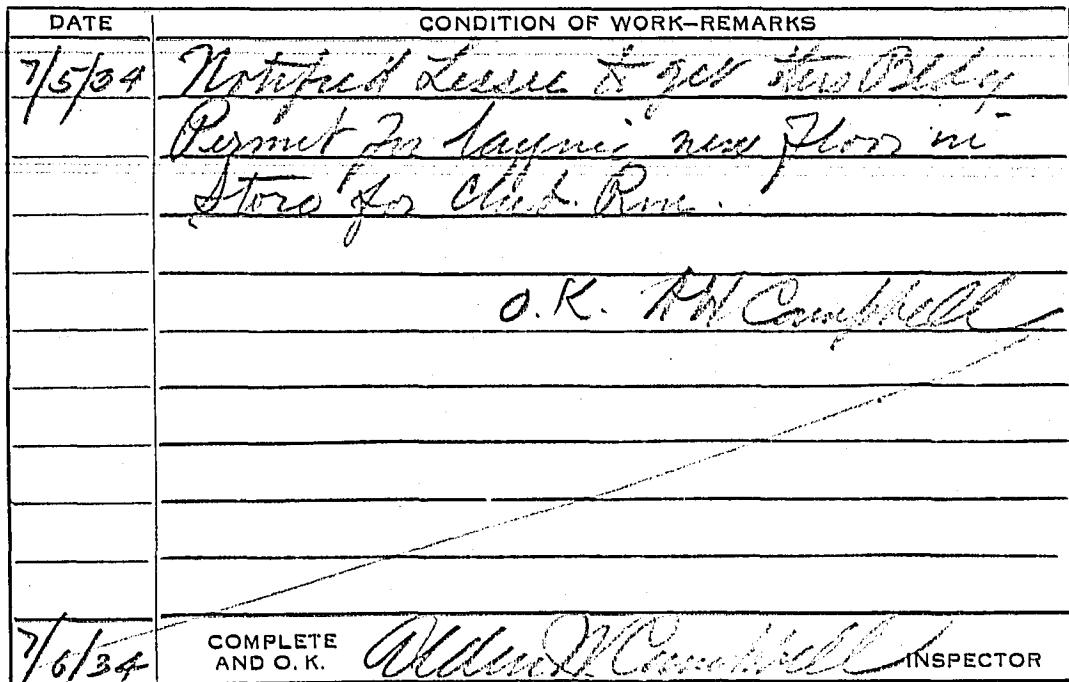 DATE CONDITION OF WORK–REMARKS
7/5/34 Notified Lessee to get this Bldg
Permit For laying new Floor in
Store for Club. Rm.
O.K. AW Campbell
7/6/34 COMPLETE AND O. K. Alden W Campbell INSPECTOR